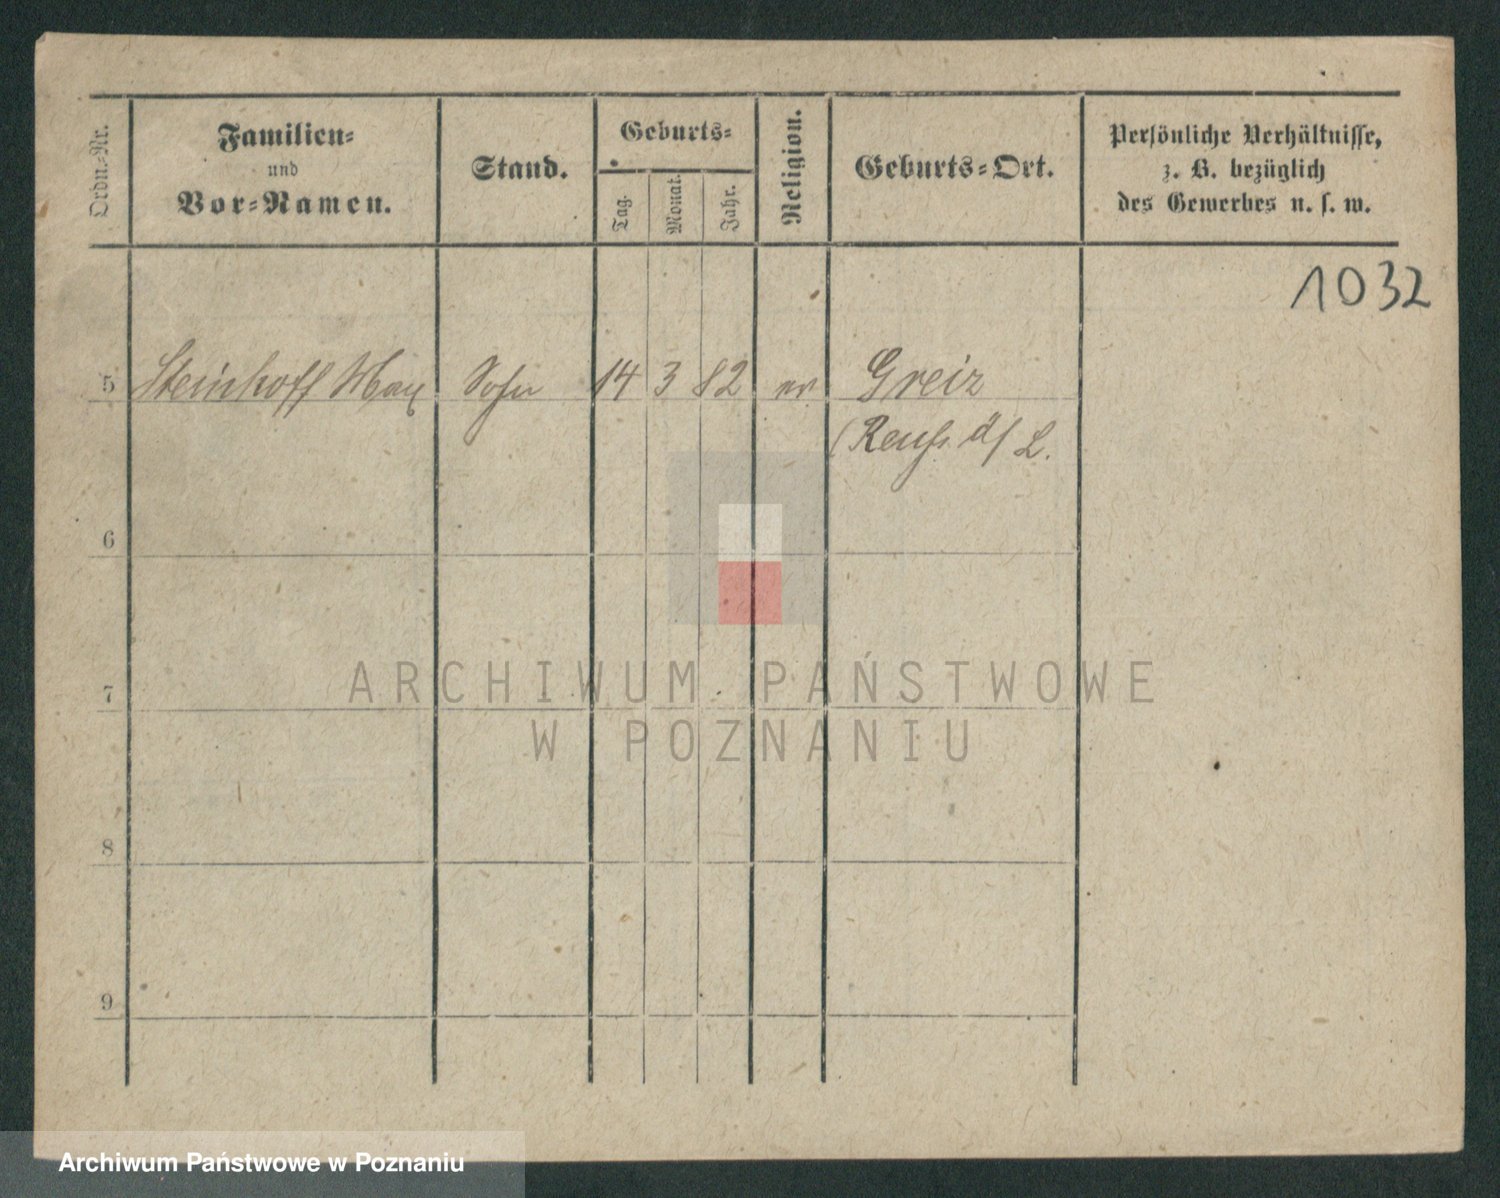 Ordn.-Nr.
Familien-
und
Vor-Namen.
Stand.
Geburts-
Tag.
Monat.
Jahr.
Religion.
Geburts-Ort.
Persönliche Verhältnisse,
z. B. bezüglich
des Gewerbes u. s. w.
1032
5 Steinhoff Max Sohn 14 3 82 ev Greiz
(Reuß ä/L.
6
7
8
9
ARCHIWUM PAŃSTWOWE
W POZNANIU
Archiwum Państwowe w Poznaniu